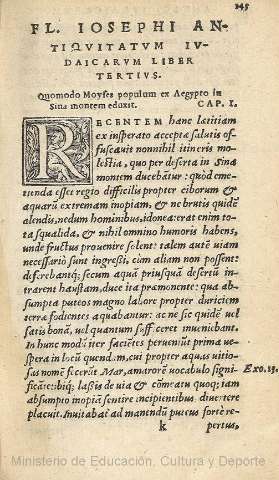 145
FL. IOSEPHI AN-
TIQVITATVM IV-
DAICARVM LIBER
TERTIVS.
Quomodo Moyses populum ex Aegypto in
Sina montem eduxit. CAP. I.
RECENTEM hanc lætitiam
ex insperato accepta salutis of-
fuscauit nonnihil itineris mo-
lestia, quo per deserta in Sina
montem ducebātur: quòd eme-
tienda esset regio difficilis propter ciborum &
aquarū extremam inopiam, & ne brutis quidē
alendis, nedum hominibus, idonea: erat enim to-
ta squalida, & nihil omnino humoris habens,
unde fructus prouenire solent: talem autē uiam
necessariò sunt ingressi, cum aliam non possent
deferebantq́; secum aquā priusquā desertū in-
trarent haustam, duce ita præmonente: qua ab-
sumpta puteos magno labore propter duriciem
terræ fodientes aquabantur: ac ne sic quidē uel
satis bonā, uel quantum suff.ceret inueniebant.
In hunc modū iter faciētes perueniūt prima ue-
spera in locū quendam, cui propter aquas uitio-
sas nomē fecerāt Mar, amarorē uocabulo signi- Exo. 15.
ficāte: ibiq́; lassis de uia & cōmeatu quoq; iam
absumpto inopiā sentire incipientibus diuertere
placuit. Inuitabat ad manendū puteus fortè re-
k pertus,
Ministerio de Educación, Cultura y Deporte